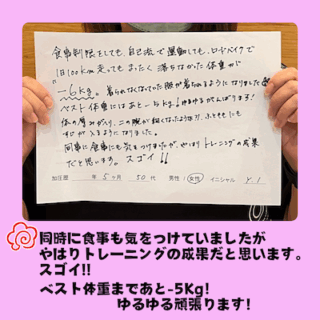 食事制限をしても、自己流で運動しても、ロードバイクで
1日100km走ってもまったく落ちなかった体重が
-6kg。着られなくなっていた服が着られるようになりました
ベスト体重にはあと-5kg!ゆるゆるがんばります!
体の厚みが減り、この腕が細くなったようなり、ふとももにも
すじが入るようになりました。
同時に食事にも気をつけましたが、やはりトレーニングの成果
だと思います。スゴイ!!
加圧歴 年5ヶ月 50代 男性・女性 イニシャル Y.I
同時に食事も気をつけていましたが
やはりトレーニングの成果だと思います。
スゴイ!!
ベスト体重まであと-5Kg!
ゆるゆる頑張ります!